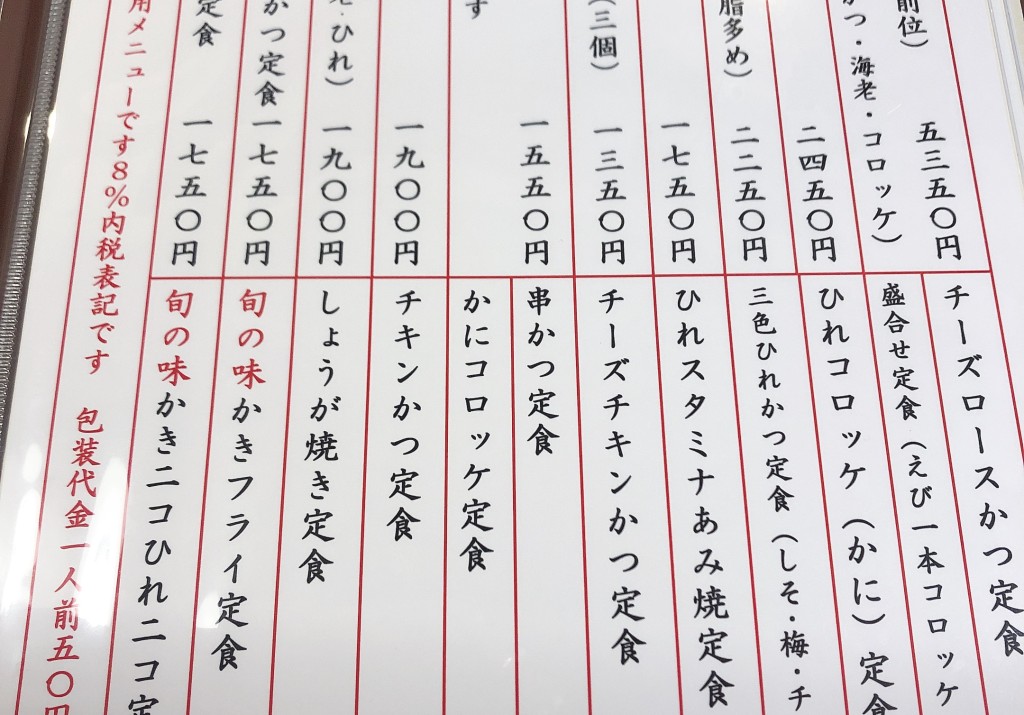 前位）
五三五〇円
かつ・海老・コロッケ）
二四五〇円
脂多め）
二二五〇円
一七五〇円
（三個）
一三五〇円
す
一五五〇円
一九〇〇円
・ひれ）
一九〇〇円
かつ定食
一七五〇円
定食
一七五〇円
チーズロースかつ定食
盛合せ定食（えび一本コロッケ
ひれコロッケ（かに）定食
三色ひれかつ定食（しそ・梅・チ
ひれスタミナあみ焼定食
チーズチキンかつ定食
串かつ定食
かにコロッケ定食
チキンかつ定食
しょうが焼き定食
旬の味かきフライ定食
旬の味かき二コひれ二コ定
用メニューです8％内税表記です　包装代金一人前五〇円